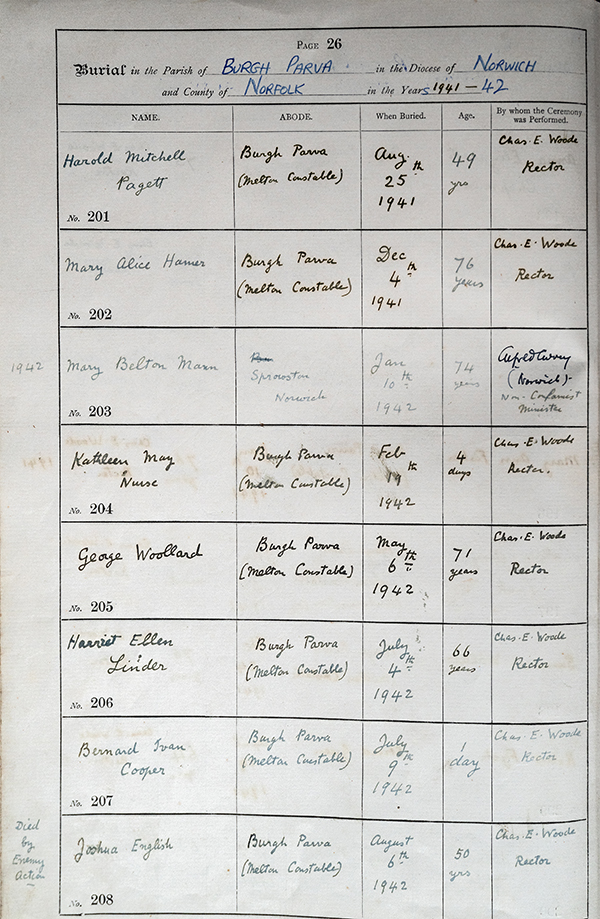 PAGE 26
Burial in the Parish of BURGH PARVA in the Diocese of NORWICH
and County of NORFOLK in the Years 1941 - 42
NAME. ABODE. When Buried. Age. By whom the Ceremony was Performed.
Harold Mitchell
Pagett
No. 201
Burgh Parva
(Melton Constable)
Aug.
25th
1941
49
yrs
Chas. E. Woode
Rector
Mary Alice Hamer
No. 202
Burgh Parva
(Melton Constable)
Dec
4th
1941
76
years
Chas. E. Woode
Rector
1942
Mary Belton Mann
No. 203
Sprowston
Norwich
Jan
10th
1942
74
years
Alfred
(Norwich)-
Non-Conformist
Minister
Kathleen May
Nurse
No. 204
Burgh Parva
(Melton Constable)
Feb
19th
1942
4
days
Chas. E. Woode
Rector.
George Woollard
No. 205
Burgh Parva
(Melton Constable)
May
6th
1942
71
years
Chas. E. Woode
Rector
Harriet Ellen
Linder
No. 206
Burgh Parva
(Melton Constable)
July
4th
1942
66
years
Chas. E. Woode
Rector
Bernard Ivan
Cooper
No. 207
Burgh Parva
(Melton Constable)
July
9th
1942
1
day
Chas. E. Woode
Rector
Died
by
Enemy
Action
Joshua English
No. 208
Burgh Parva
(Melton Constable)
August
6th
1942
50
yrs
Chas. E. Woode
Rector